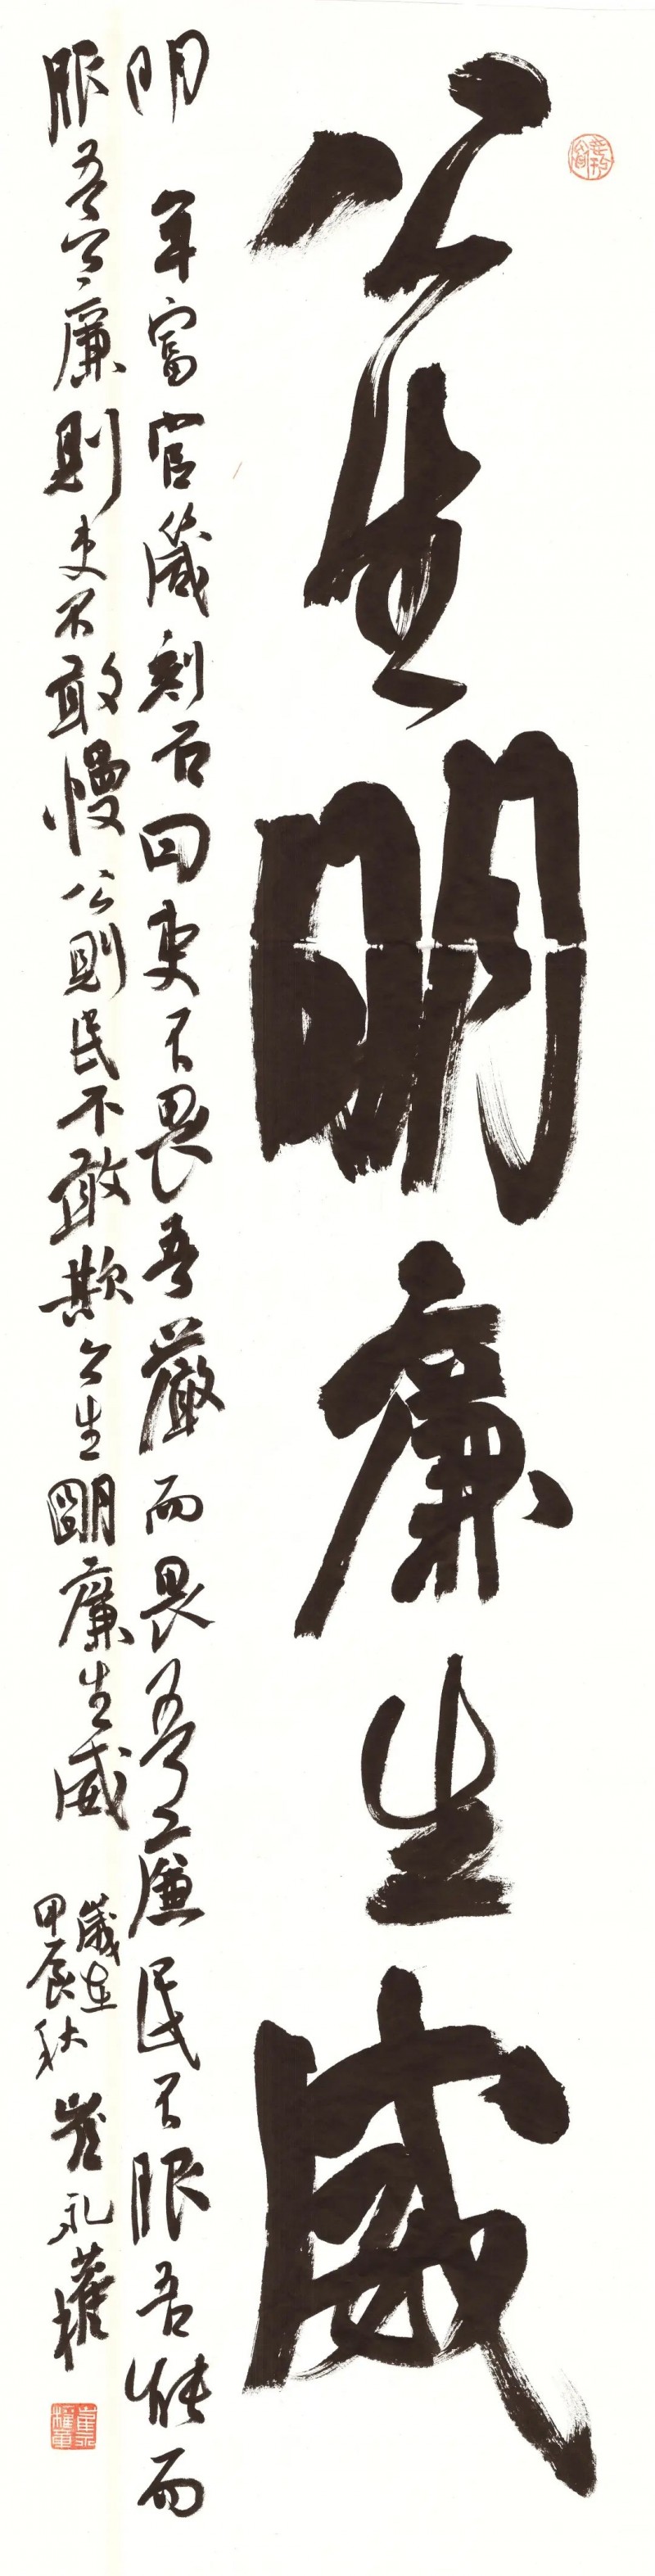 公生明廉生威
明 年富官箴刻石曰吏不畏吾嚴而畏吾廉民不服吾能而
服吾公廉則吏不敢慢公則民不敢欺公生明廉生威
歲在
甲辰秋 崔永權